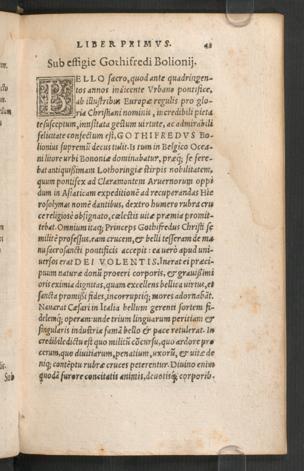 LIBER PRIMVS. 43
Sub effigie Gothifredi Bolionij.
BELLO sacro, quod ante quadringen-
tos annos indicente Vrbano pontifice,
ab illustribus Europæ regulis pro glo-
ria Christiani nominis, incredibili pieta
te susceptum, inusitata gestum virtute, ac admirabili
felicitate confectum est, GOTHIFREDVS Bo-
lionius supremũ decus tulit. Is cum in Belgico Ocea-
ni litore vrbi Bononiæ dominabatur, præq; se fere-
bat antiquißimam Lothoringiæ stirpis nobilitatem,
quum pontifex ad Claramontem Aruernorum oppi
dum in Asiaticam expeditionẽ ad recuperandas Hie
rosolymas nomẽ dantibus, dextro humero rubra cru
ce religiosè obsignato, cælestis uitæ præmia promit-
tebat. Omnium itaq; Princeps Gothifredus Christi se
militẽ professus, eam crucem, & belli tesseram de ma
nu sacrosancti pontificis accepit: ea uerò apud uni-
uersos erat DEI VOLENTIS. Inerat ei præci-
puum naturæ donũ proceri corporis, & grauißimi
oris eximia dignitas, quam excellens bellica uirtus, et
sancta promißi fides, incorruptiq; mores adornabãt.
Nauarat Cæsari in Italia bellum gerenti fortem fi-
delemq; operam: unde trium linguarum peritiam &
singularis industriæ famã bello & pace retulerat. In
credibile dictu est quo militũ cõcursu, quo ardore pro
cerum, quo diuitiarum, penatium, uxorũ, & uitæ de
niq; contẽptu rubræ cruces peterentur. Diuino enim
quodã furore concitatis animis, deuotisq; corporib.